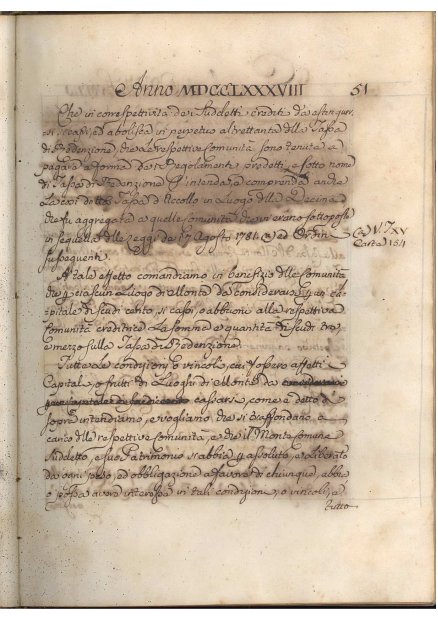 Anno MDCCLXXXVIII 51
Che in correspettività dei suddetti crediti da estinguersi
si cassi, ed abolisca in perpetuo altrettanta della Tassa
di Redenzione che le respettive Comunità sono tenute a
pagare a forma dei Regolamenti predetti, e sotto nome
di Tassa di Redenzione s'intenda, e comprenda anche
la così detta Tassa di Accollo in luogo della Decima
che fu aggregata a quelle Comunità che vi erano sottoposte
in sequela della Legge de 17 Agosto 1781 ed Ordini
susseguenti.
Ca N.º XV
Carta 154
A tale effetto comandiamo in benefizio delle Comunità
che per ciascun Luogo di Monte da considerarsi per un ca-
pitale di scudi cento, si cassi, o abbuoni alla respettiva
Comunità creditrice la somma e quantità di scudi tre
e mezzo sulla Tassa di Redenzione.
Tutte le condizioni, o vincoli, cui fossero affetti
Capitali, o frutti di Luoghi di Monte da
cassarsi, come è detto di
sopra intendiamo, e vogliamo che si trasfondano a
carico delle respettive Comunità, e che il Monte Comune
suddetto, e suoi Patrimonio si abbia per assoluto, e liberato
da ogni peso, ed obbligazione a favore di chiunque, abbia
o possa avere interesse in tali condizioni, o vincoli, e
tutto